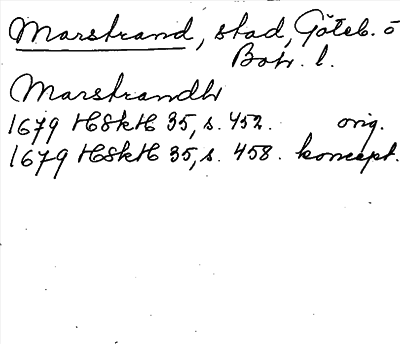 Marstrand, stad, Göteb. o
Boh. l.
Marstrandh
1679 HSkH 35, s. 452. orig.
1679 HSkH 35, s. 458. koncept.